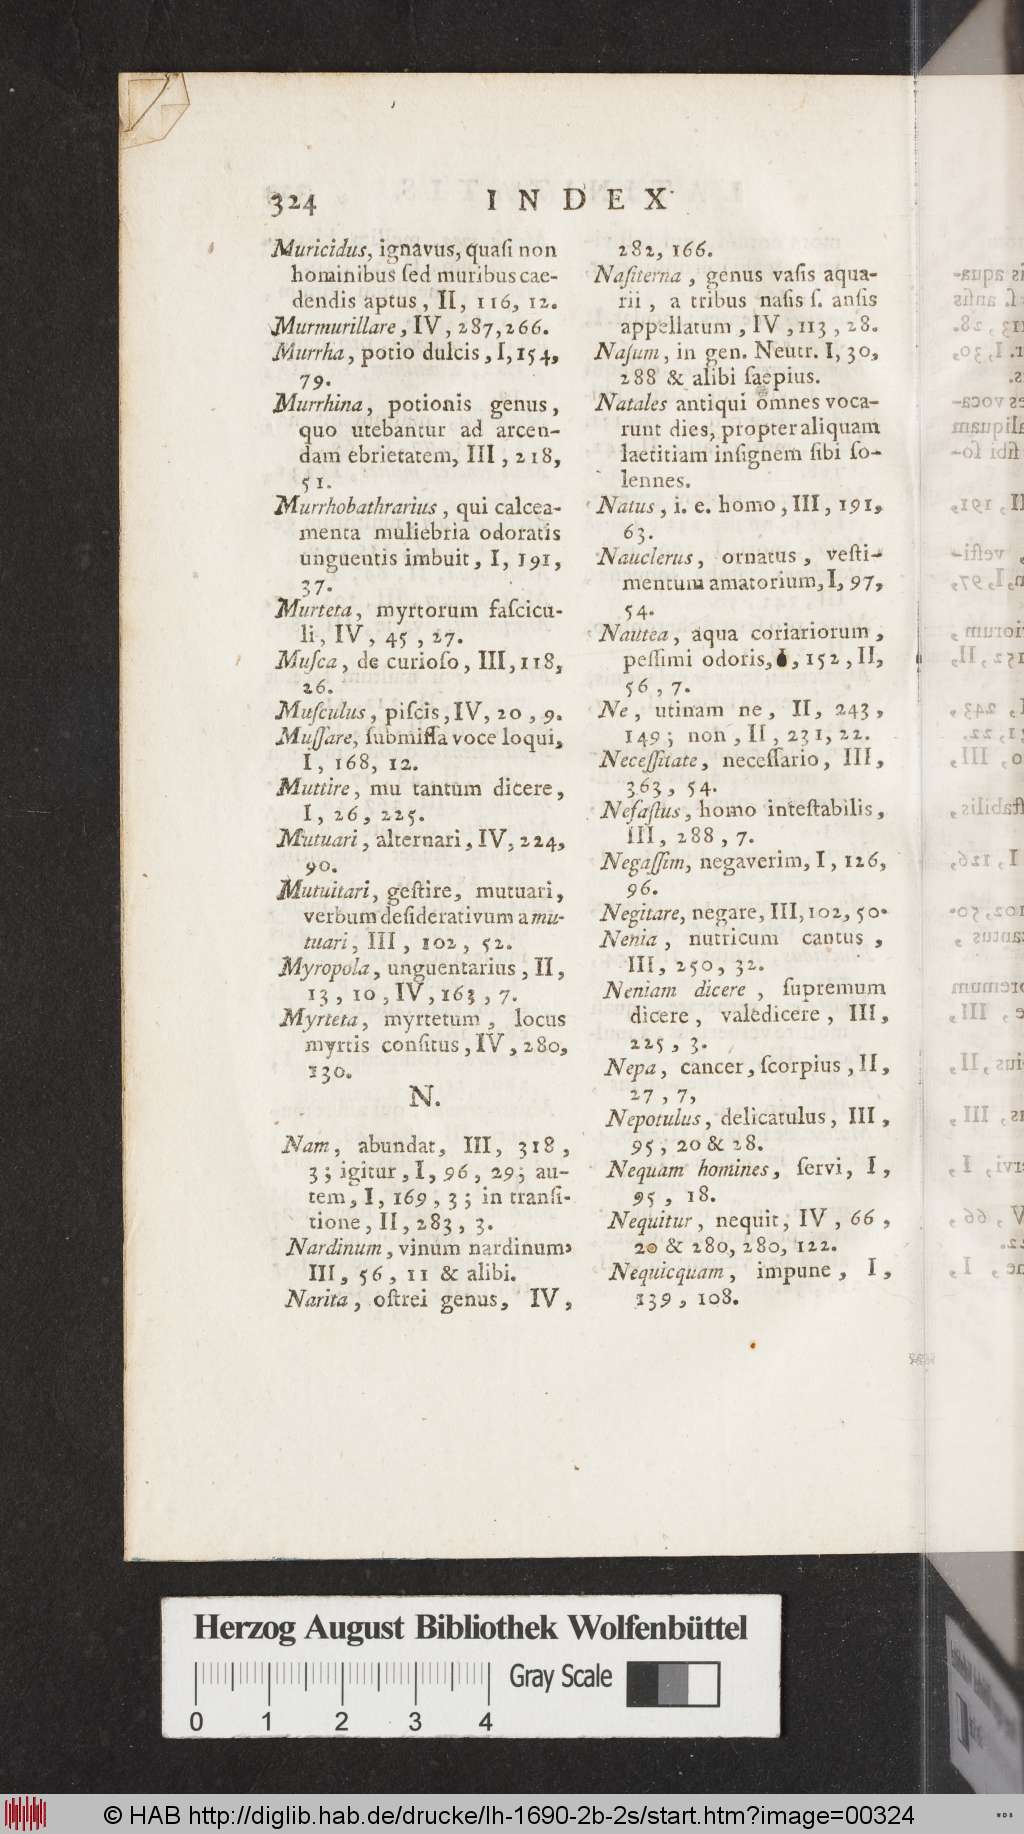 324 INDEX
Muricidus, ignavus, quaſi non
hominibus ſed muribus cae-
dendis aptus, II, 116, 12.
Murmurillare, IV, 287, 266.
Murrha, potio dulcis, I, 154,
79.
Murrhina, potionis genus,
quo utebantur ad arcen-
dam ebrietatem, III, 218,
51.
Murrhobathrarius, qui calcea-
menta muliebria odoratis
unguentis imbuit, I, 191,
37.
Murteta, myrtorum faſcicu-
li, IV, 45, 27.
Muſca, de curioſo, III, 118,
26.
Muſculus, piſcis, IV, 20, 9.
Muſſare, ſubmiſſa voce loqui,
I, 168, 12.
Muttire, mu tantum dicere,
I, 26, 225.
Mutuari, alternari, IV, 224,
90.
Mutuitari, geſtire, mutuari,
verbum deſiderativum a mu-
tuari, III, 102, 52.
Myropola, unguentarius, II,
13, 10, IV, 163, 7.
Myrteta, myrtetum, locus
myrtis conſitus, IV, 280,
130.
N.
Nam, abundat, III, 318,
3; igitur, I, 96, 29; au-
tem, I, 169, 3; in tranſi-
tione, II, 283, 3.
Nardinum, vinum nardinum,
III, 56, 11 & alibi.
Narita, oſtrei genus, IV,
282, 166.
Naſiterna, genus vaſis aqua-
rii, a tribus naſis ſ. anſis
appellatum, IV, 113, 28.
Naſum, in gen. Neutr. I, 30,
288 & alibi ſaepius.
Natales antiqui omnes voca-
runt dies, propter aliquam
laetitiam inſignem ſibi ſo-
lennes.
Natus, i. e. homo, III, 191,
63.
Nauclerus, ornatus, veſti-
mentum amatorium, I, 97,
54.
Nautea, aqua coriariorum,
peſſimi odoris, I, 152, II,
56, 7.
Ne, utinam ne, II, 243,
149; non, II, 231, 22.
Neceſſitate, neceſſario, III,
363, 54.
Nefaſtus, homo inteſtabilis,
III, 288, 7.
Negaſſim, negaverim, I, 126,
96.
Negitare, negare, III, 102, 50.
Nenia, nutricum cantus,
III, 250, 32.
Neniam dicere, ſupremum
dicere, valedicere, III,
225, 3.
Nepa, cancer, ſcorpius, II,
27, 7,
Nepotulus, delicatulus, III,
95, 20 & 28.
Nequam homines, ſervi, I,
95, 18.
Nequitur, nequit, IV, 66,
20 & 280, 280, 122.
Nequicquam, impune, I,
139, 108.
Herzog August Bibliothek Wolfenbüttel
Gray Scale
0 1 2 3 4
© HAB http://diglib.hab.de/drucke/lh-1690-2b-2s/start.htm?image=00324